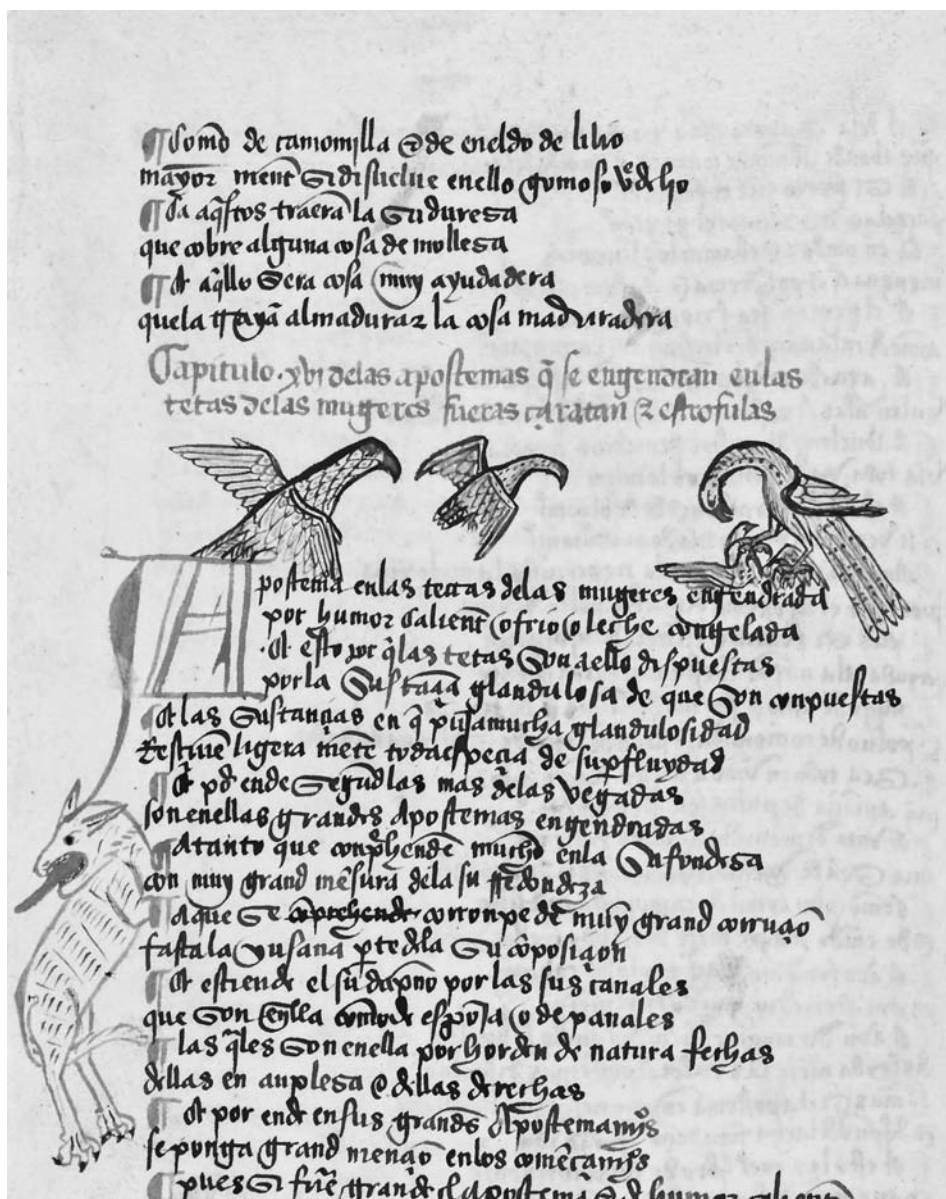 ¶ Como de camomilla & de eneldo de lilio
mayor ment si disuelue enello gomoso
¶ Ca aq̃stos traera la su duresa
que cobre alguna cosa de mollesa
¶ Et aq̃llo sera cosa muy ayudadera
que la al madurar la cosa maduradera
Capitulo .xvi delas apostemas q̃ se engendran enlas
tetas delas mugeres fueras & estrofulas
Apostema enlas tetas delas mugeres engendrada
por humor calient o frio o leche congelada
Et esto por q̃ las tetas son aello dispuestas
por la sustança glandulosa de que son conpuestas
¶ Et las sustanças en q̃ mucha glandulosidad
ligera mẽte toda de superfluydad
¶ Et por ende segũd las mas delas vegadas
son enellas grandes apostemas engendradas
¶ Atanto que conprehendẽ mucho enla su fondesa
con muy grand mesura dela su rredondeza
¶ Aque se conprehende corronpe de muy grand corruçiõ
fasta la su cõposiçion
¶ Et estiende el su dapno por las sus canales
que son en ella como de esponja o de panales
¶ Las q̃les son enella por horden de natura fechas
dellas en & dellas derechas
¶ Et por ende en sus grandes
se ponga grand enlos
¶ Pues si fuere grande el apostema & de humor calient